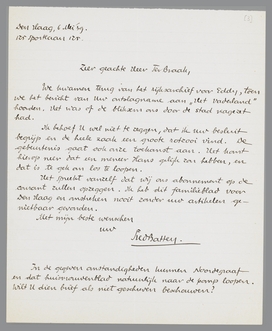 Den Haag, 6 Mei 39.
125 Sportlaan 125.
Zeer geachte Heer Ter Braak,
We kwamen terug van het rijksarchief voor Eddy, toen
we het bericht van Uw ontslagname aan „Het Vaderland"
hoorden. Het was of de bliksem ons door de stad
had.
Ik behoef U wel niet te zeggen, dat ik Uw besluit
begrijp en de heele zaak een groote rotzooi vind. De
gebeurtenis gaat ook onze toekomst aan. Het komt
hierop neer dat een meneer Hans gelijk zou hebben, en
dat is te gek om los te loopen.
Het spreekt vanzelf dat wij ons abonnement op de
courant zullen opzeggen. Ik heb dit familieblad voor
Den Haag en omstreken nooit zonder uw artikelen
gevonden.
Met mijn beste wenschen
uw
Fred Batten.
In de gegeven omstandigheden kunnen Noordegraaf
en dat natuurlijk naar de pomp loopen.
Wilt U dien brief als niet geschreven beschouwen?